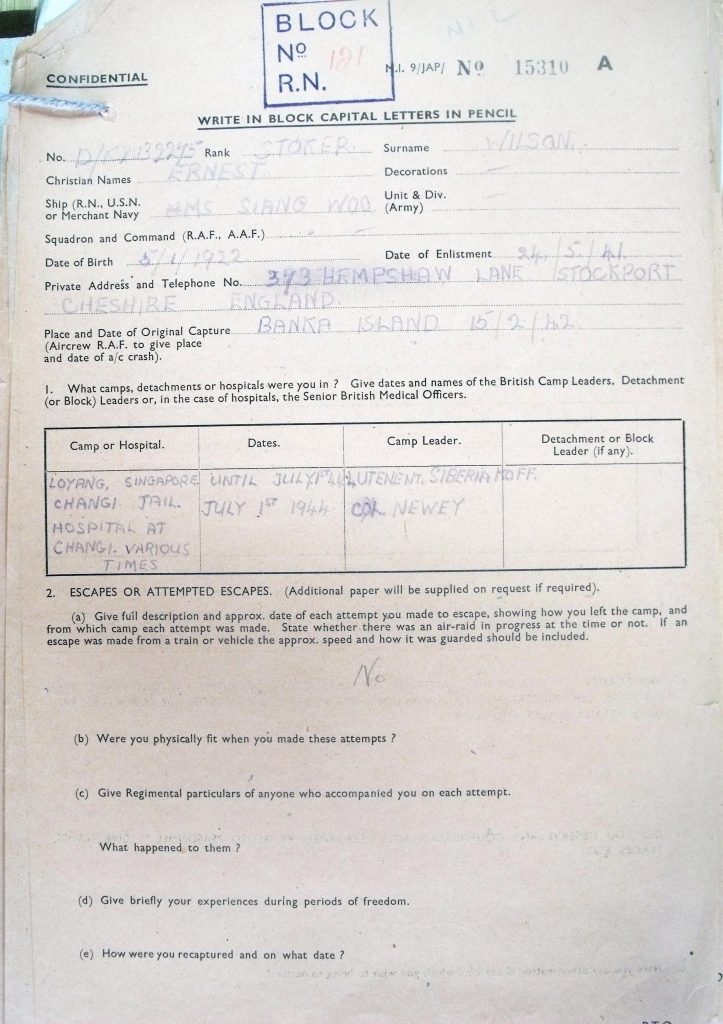 BLOCK
Nº 121
R.N.
NIL
CONFIDENTIAL
M.I. 9/JAP/ Nº 15310 A
WRITE IN BLOCK CAPITAL LETTERS IN PENCIL
No. D/KX132275 Rank STOKER Surname WILSON.
Christian Names ERNEST Decorations —
Ship (R.N., U.S.N. or Merchant Navy HMS SIANG WOO Unit & Div. (Army) —
Squadron and Command (R.A.F., A.A.F.) —
Date of Birth 5/1/1922 Date of Enlistment 24/5/41
Private Address and Telephone No. 373 HEMPSHAW LANE STOCKPORT
CHESHIRE ENGLAND.
Place and Date of Original Capture BANKA ISLAND 15/2/42
(Aircrew R.A.F. to give place
and date of a/c crash).
1. What camps, detachments or hospitals were you in ? Give dates and names of the British Camp Leaders, Detachment
(or Block) Leaders or, in the case of hospitals, the Senior British Medical Officers.
Camp or Hospital. Dates. Camp Leader. Detachment or Block Leader (if any).
LOYANG, SINGAPORE UNTIL JULY 1ST 44 LUTENENT. SIBERIAKOFF.
CHANGI JAIL JULY 1ST 1944 COL NEWEY
HOSPITAL AT
CHANGI. VARIOUS
TIMES
2. ESCAPES OR ATTEMPTED ESCAPES. (Additional paper will be supplied on request if required).
(a) Give full description and approx. date of each attempt you made to escape, showing how you left the camp, and
from which camp each attempt was made. State whether there was an air-raid in progress at the time or not. If an
escape was made from a train or vehicle the approx. speed and how it was guarded should be included.
No
(b) Were you physically fit when you made these attempts ?
(c) Give Regimental particulars of anyone who accompanied you on each attempt.
What happened to them ?
(d) Give briefly your experiences during periods of freedom.
(e) How were you recaptured and on what date ?
P.T.O.